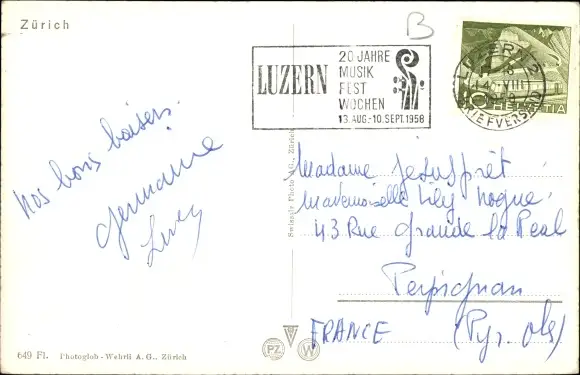 Zürich
B
LUZERN
20 JAHRE
MUSIK
FEST
WOCHEN
13. AUG.-10. SEPT. 1958
LUZERN 2
VIII
BRIEFVERSAND
10 HELVETIA
Nos bons baisers
Germaine
Swissair Photo A.G., Zürich
Madame
Mademoiselle Lily Nogue.
43 Rue Grande la Réal
Perpignan
FRANCE (Pyr. Ols)
PZ W
649 Fl. Photoglob-Wehrli A.G., Zürich